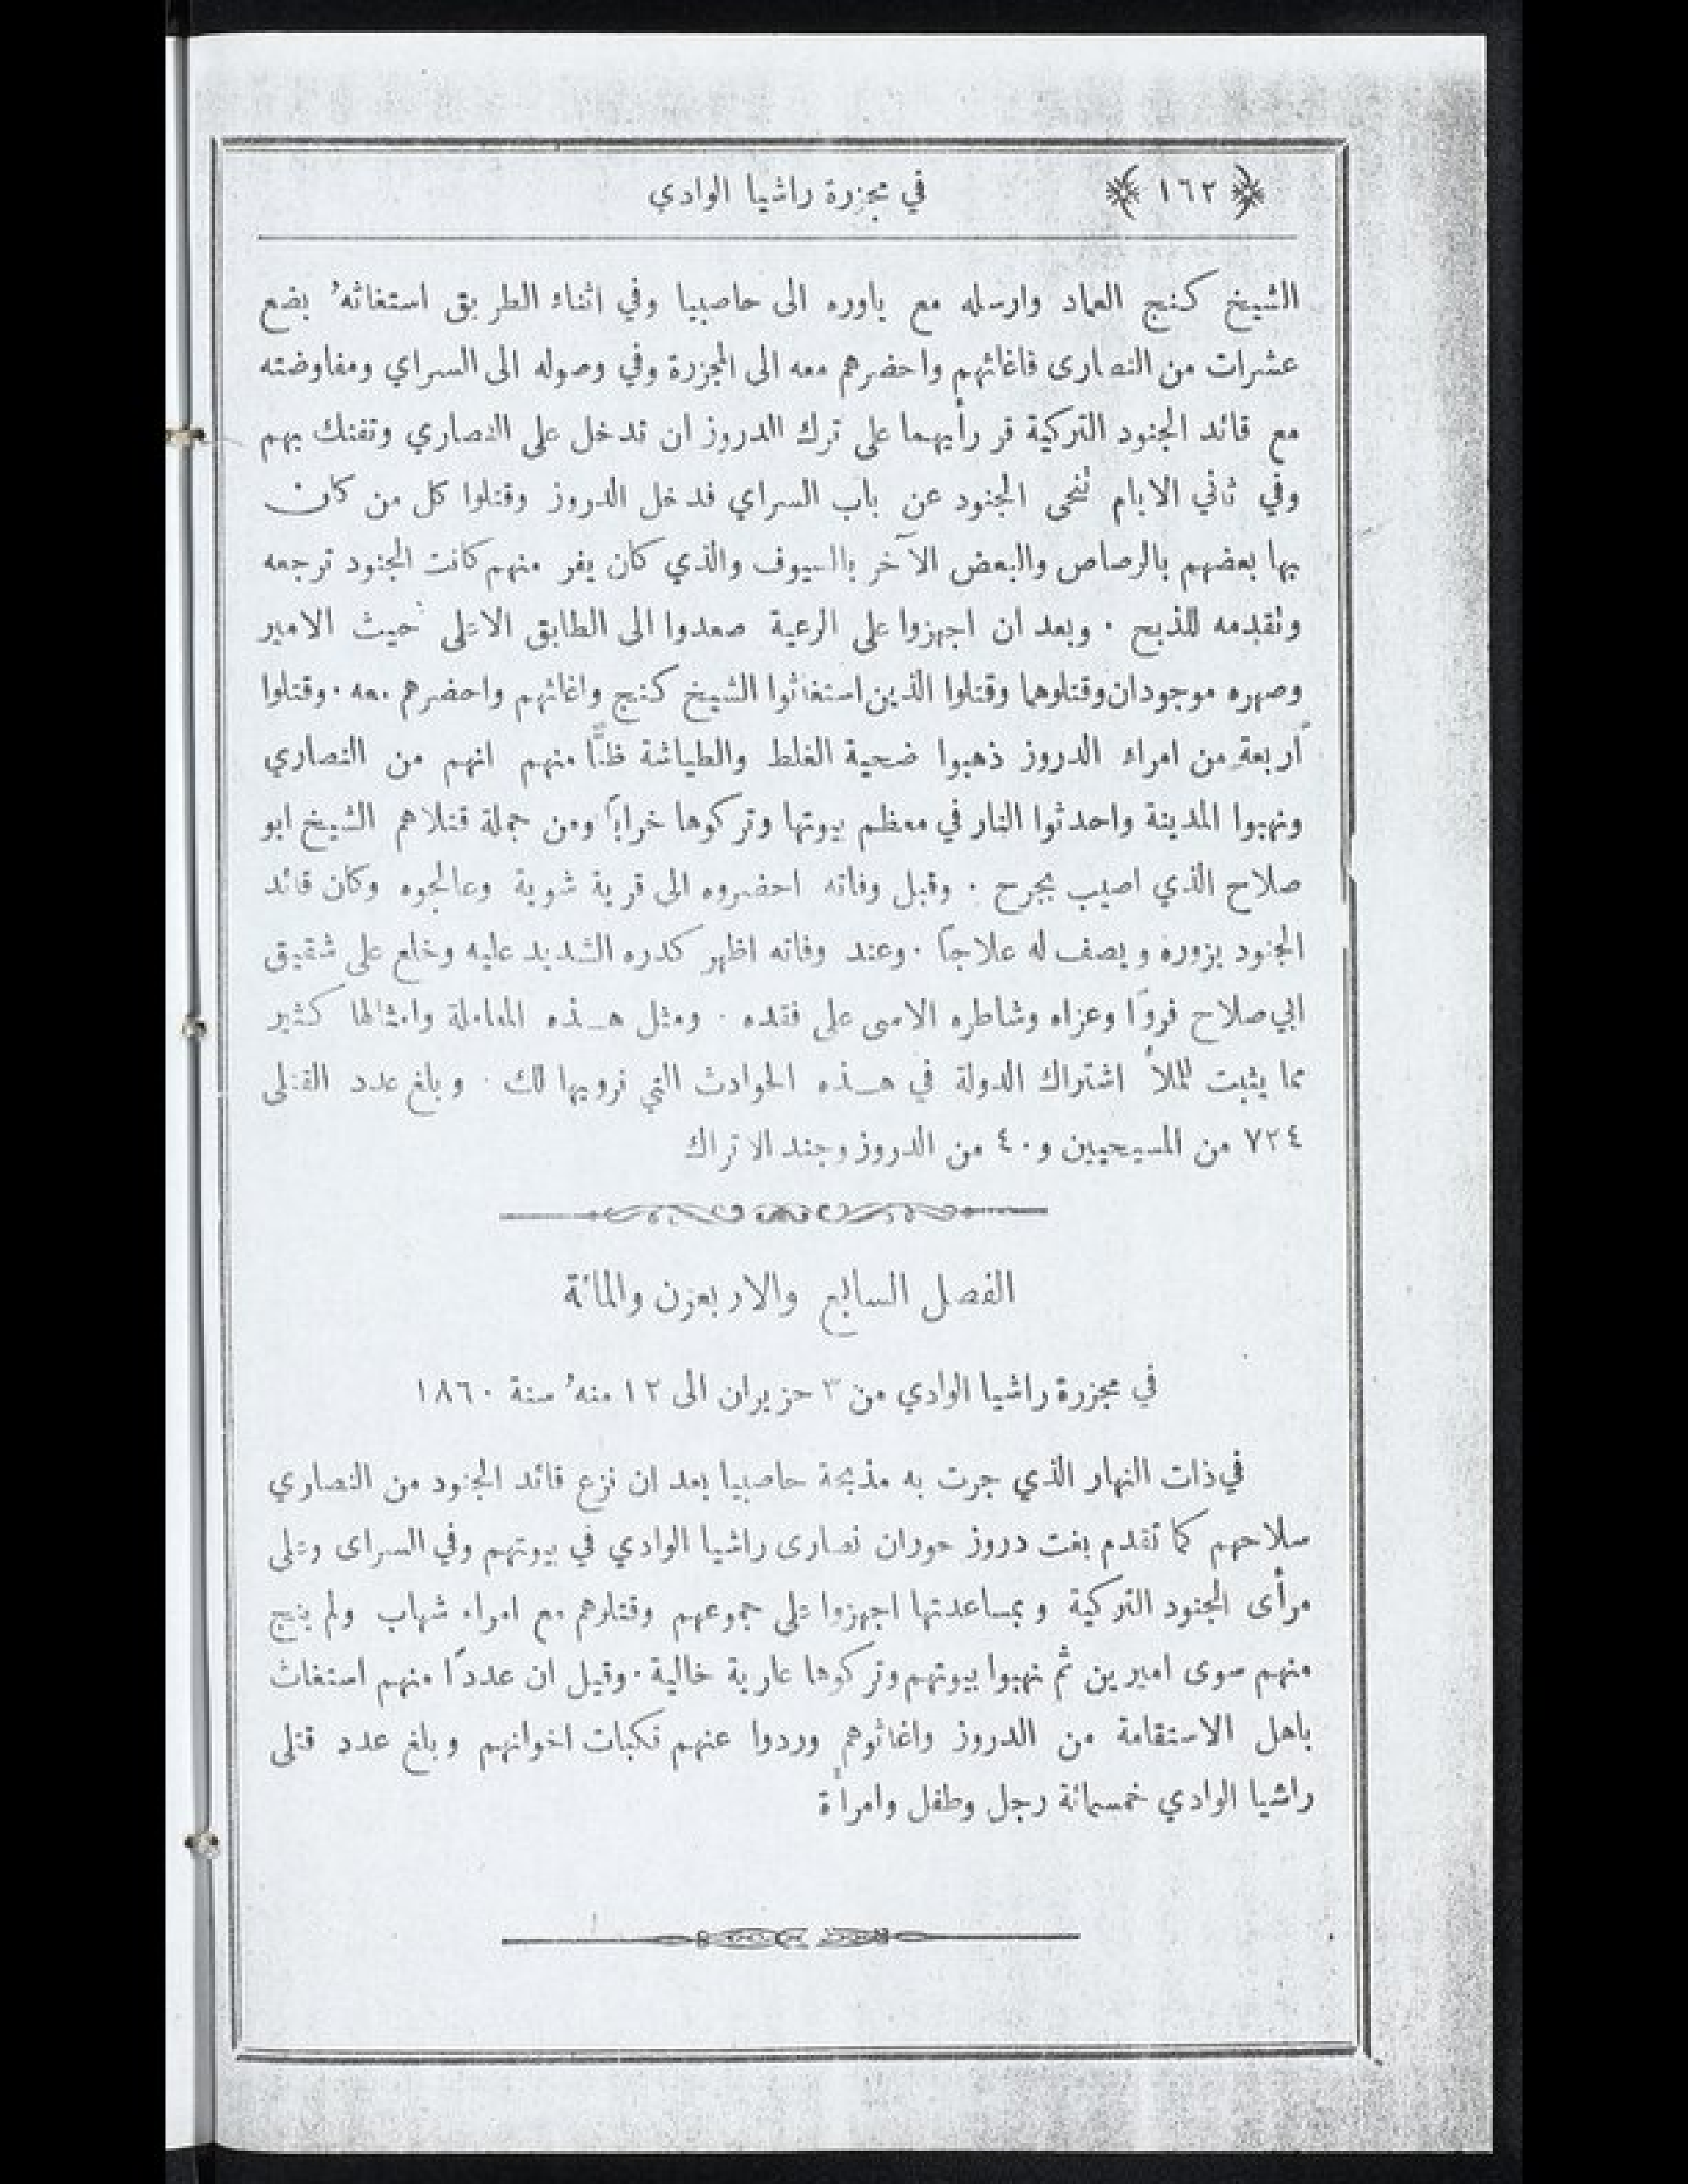 ﴿ ١٦٢ ﴾ في مجزرة راشيا الوادي
الشيخ كنج العماد وارسله مع ياوره الى حاصبيا وفي اثناء الطريق استغاثهُ بضع
عشرات من النصارى فاغاثهم واحضرهم معه الى المجزرة وفي وصوله الى السراي ومفاوضته
مع قائد الجنود التركية قر رأيهما على ترك الدروز ان تدخل على النصاري وتفتك بهم
وفي ثاني الايام تنحى الجنود عن باب السراي فدخل الدروز وقتلوا كل من كان
بها بعضهم بالرصاص والبعض الآخر بالسيوف والذي كان يفر منهم كانت الجنود ترجعه
وتقدمه للذبح ٠ وبعد ان اجهزوا على الرعية صعدوا الى الطابق الاعلى حيث الامير
وصهره موجودان وقتلوهما وقتلوا الذين استغاثوا الشيخ كنج واغاثهم واحضرهم معه ٠ وقتلوا
اربعة من امراء الدروز ذهبوا ضحية الغلط والطياشة ظنًّا منهم انهم من النصاري
ونهبوا المدينة واحدثوا النار في معظم بيوتها وتركوها خرابًا ومن جملة قتلاهم الشيخ ابو
صلاح الذي اصيب بجرح ٠ وقبل وفاته احضروه الى قرية شوية وعالجوه وكان قائد
الجنود يزوره ويصف له علاجًا ٠ وعند وفاته اظهر كدره الشديد عليه وخلع على شقيق
ابي صلاح فروًا وعزاه وشاطره الاسى على فقده ٠ ومثل هـذه المعاملة وامثالها كثير
مما يثبت للملأ اشتراك الدولة في هـذه الحوادث التي نرويها لك ٠ وبلغ عدد القتلى
٧٣٤ من المسيحيين و٤٠ من الدروز وجند الاتراك
الفصل السابع والاربعون والمائة
في مجزرة راشيا الوادي من ٣ حزيران الى ١٢ منهُ سنة ١٨٦٠
في ذات النهار الذي جرت به مذبحة حاصبيا بعد ان نزع قائد الجنود من النصاري
سلاحهم كما تقدم بغت دروز حوران نصارى راشيا الوادي في بيوتهم وفي السراى وعلى
مرأى الجنود التركية وبمساعدتها اجهزوا على جموعهم وقتلوهم مع امراء شهاب ولم ينج
منهم سوى اميرين ثم نهبوا بيوتهم وتركوها عارية خالية ٠ وقيل ان عددًا منهم استغاث
باهل الاستقامة من الدروز واغاثوهم وردوا عنهم نكبات اخوانهم وبلغ عدد قتلى
راشيا الوادي خمسمائة رجل وطفل وامرأة